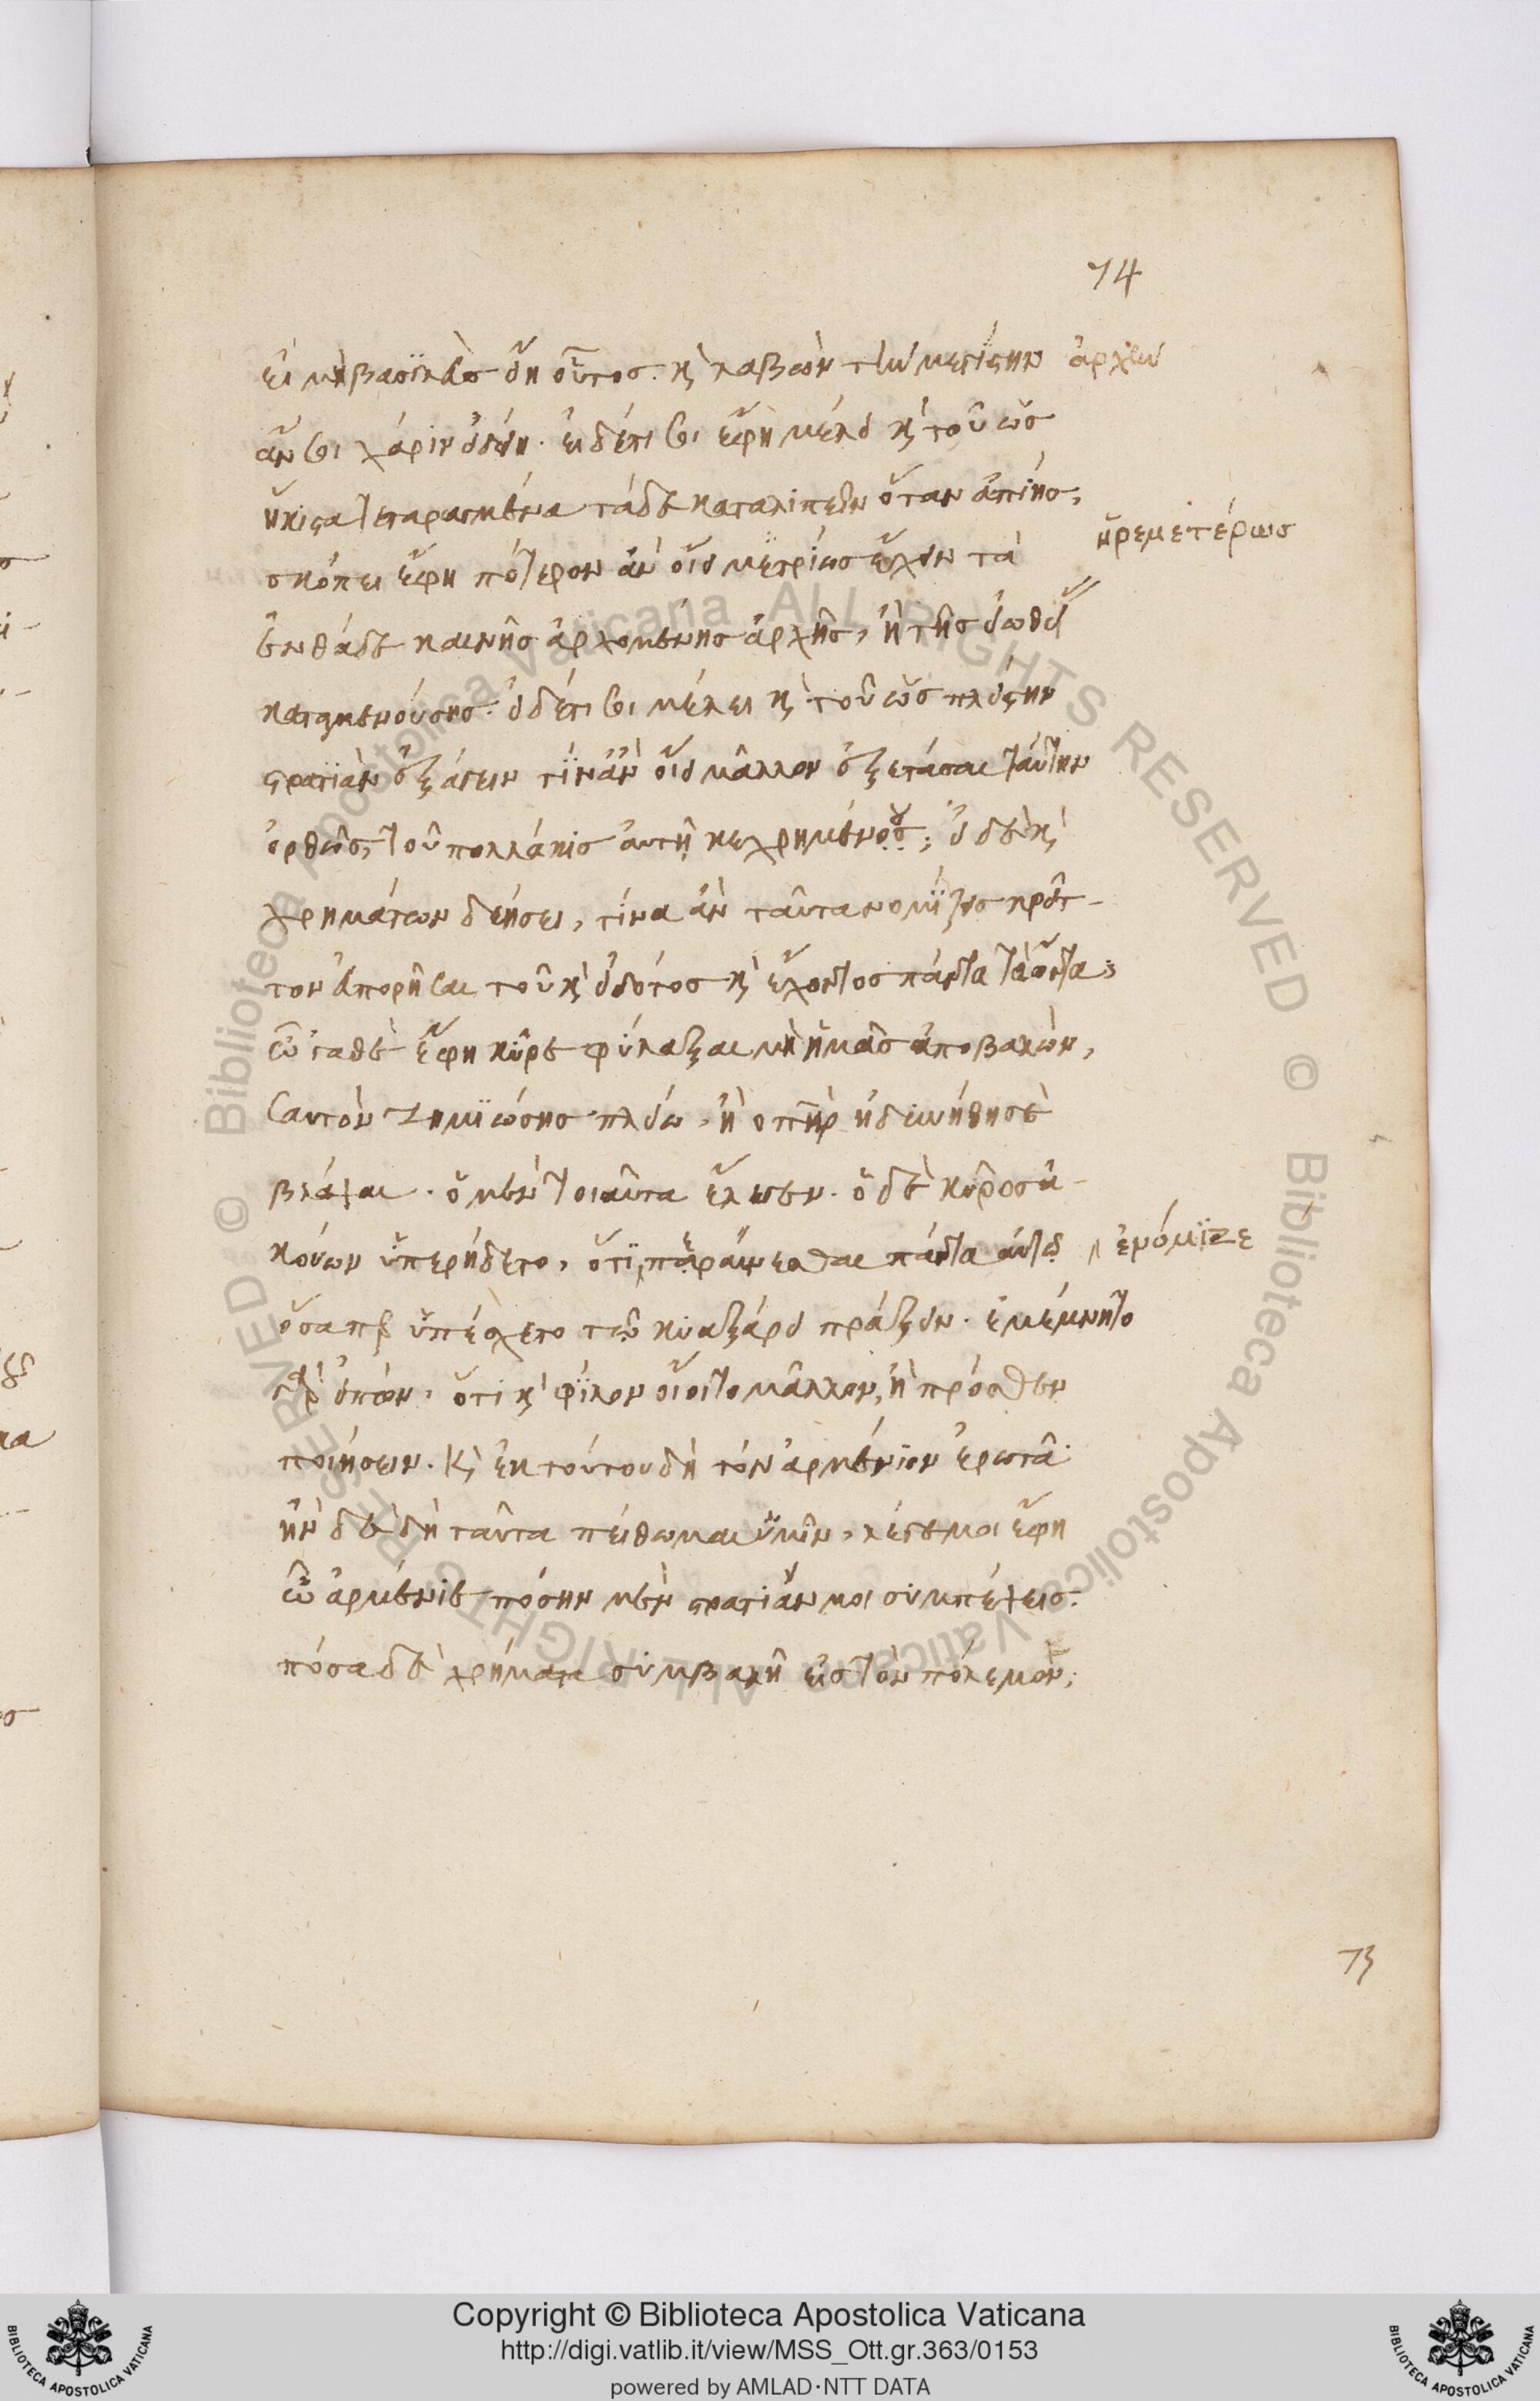 74
εἰ μὴ βασιλεὺς εἴη οὗτος. καὶ λαβὼν τὴν μεγίστην ἀρχὴν
ἄν σοι χάριν εἰδείη. εἰ δέ τί σοι ἔφη μέλει καὶ τοῦ ὡς
ἥκιστα τεταραγμένα τάδε καταλιπεῖν ὅταν ἀπίῃς,
σκόπει ἔφη πότερον ἂν οἴει μετρίως ἔχειν τὰ
ἠρεμετέρως
ἐνθάδε καινῆς ἀρχομένης ἀρχῆς, ἢ τῆς εἰωθυίας
καταμενούσης. εἰ δέ τί σοι μέλει καὶ τοῦ ὡς πλείστην
στρατιὰν ἐξάγειν τίν' ἂν οἴει μᾶλλον ἐξετάσαι ταύτην
ὀρθῶς, τοῦ πολλάκις αὐτῇ κεχρημένου; εἰ δὲ καὶ
χρημάτων δεήσει, τίνα ἂν ταῦτα νομίζεις κρεῖτ-
τον ἐκπορῆσαι τοῦ καὶ εἰδότος καὶ ἔχοντος πάντα τὰ ὄντα;
ὦ 'γαθὲ ἔφη κῦρε φύλαξαι μὴ ἡμᾶς ἀποβαλών,
σαυτὸν ζημιώσῃς πλείω, ἢ ὁ πατὴρ ἠδυνήθη σὲ
βλάψαι. ὁ μὲν τοιαῦτα ἔλεγεν. ὁ δὲ κῦρος ἀ-
κούων ὑπερήδετο, ὅτι περαίνεσθαι πάντα αὐτῷ
ἐνόμιζε
ὅσαπερ ὑπέσχετο τῷ κυαξάρει πράξειν. ἐμέμνητο
γὰρ εἰπών, ὅτι καὶ φίλον οἴοιτο μᾶλλον, ἢ πρόσθεν
ποιήσειν. καὶ ἐκ τούτου δὴ τὸν ἀρμένιον ἐρωτᾷ
ἢν δὲ δὴ ταῦτα πείθωμαι ὑμῖν, λέγε μοι ἔφη
ὦ ἀρμένιε πόσην μὲν στρατιάν μοι συμπέμψεις.
πόσα δὲ χρήματα συμβαλῇ εἰς τὸν πόλεμον;
73
Copyright © Biblioteca Apostolica Vaticana
http://digi.vatlib.it/view/MSS_Ott.gr.363/0153
powered by AMLAD·NTT DATA